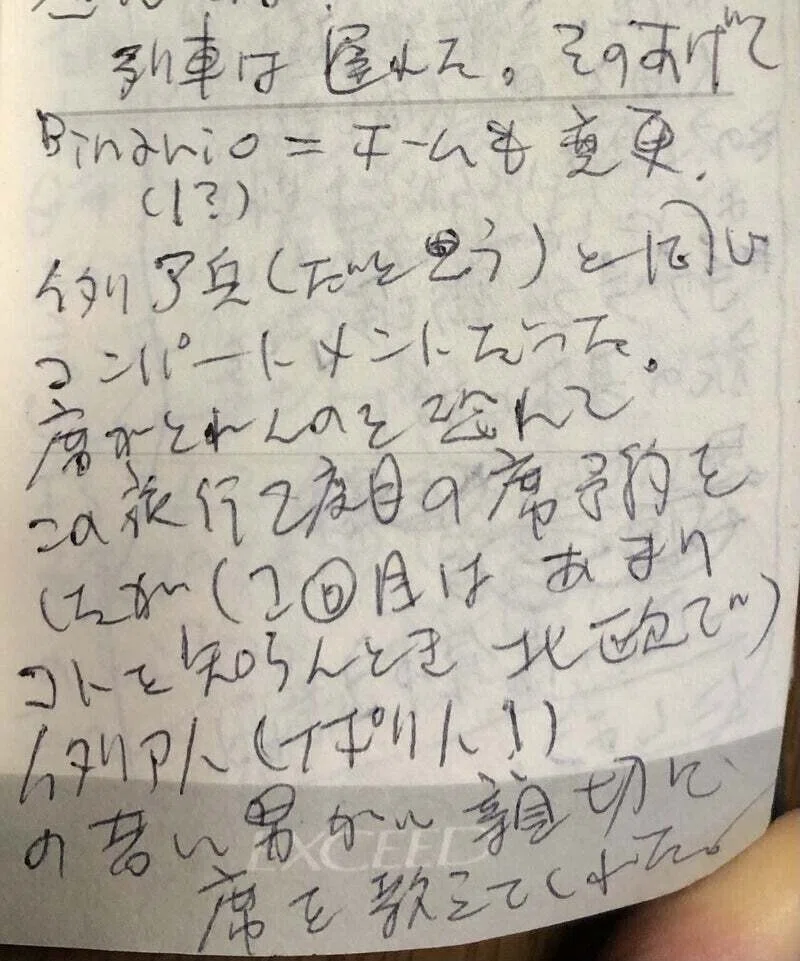 列車は遅れた。そのあげく
Binario = ホームも変更.
(1?)
イタリア兵(だと思う)と同じ
コンパートメントだった。
席がとれんのを恐れて
この旅行2度目の席予約を
したが(1回目はあまり
コトを知らんとき 北欧で)
イタリア人(ナポリ人!)
の若い男が親切に
EXCEED
席を教えてくれた。